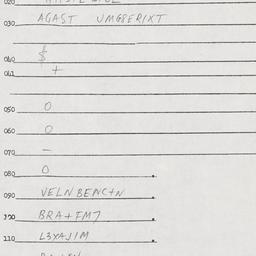 020
030 AGAST UMGSERIXT
040 $
041 +
050 0
060 0
070 -
080 0
090 VELNBEPIC+N
100 BRA+FM7
110 L3XAJIM